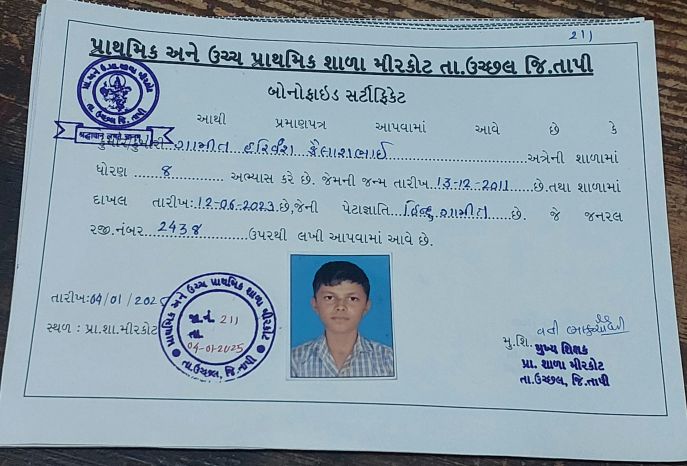 211
પ્રાથમિક અને ઉચ્ચ પ્રાથમિક શાળા મીરકોટ તા.ઉચ્છલ જિ.તાપી
બોનોફાઇડ સર્ટીફિકેટ
આથી પ્રમાણપત્ર આપવામાં આવે છે કે
કુમાર/કુમારી ગામીત હરિવંશ કૈલાશભાઈ અત્રેની શાળામાં
ધોરણ 8 અભ્યાસ કરે છે. જેમની જન્મ તારીખ 13-12-2011 છે.તથા શાળામાં
દાખલ તારીખ:12-06-2023 છે,જેની પેટાજ્ઞાતિ હિન્દુ ગામીત છે. જે જનરલ
રજી.નંબર 2438 ઉપરથી લખી આપવામાં આવે છે.
તારીખ:04/01/202
સ્થળ : પ્રા.શા.મીરકોટ
પ્રાથમિક અને ઉચ્ચ પ્રાથમિક શાળા મીરકોટ
જા.નં 211
તા
04-01-2025
તા.ઉચ્છલ, જિ.તાપી
મુ.શિ.
મુખ્ય શિક્ષક
પ્રા. શાળા મીરકોટ
તા.ઉચ્છલ, જિ.તાપી